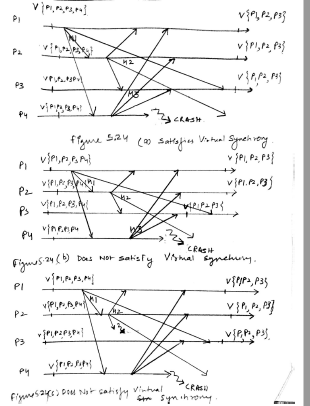 V{P1,P2,P3,P4}
P1
V{P1,P2,P3}
M1
P2
V{P1,P2,P3,P4}
M2
V{P1,P2,P3}
P3
V{P1,P2,P3,P4}
V{P1,P2,P3}
M3
P4
V{P1,P2,P3,P4}
CRASH
Figure 5.24 (a) satisfies Virtual Synchrony.
V{P1,P2,P3,P4}
P1
V{P1,P2,P3}
V{P1,P2,P3,P4}
M1
P2
V{P1,P2,P3}
M2
P3
V{P1,P2,P3,P4}
V{P1,P2,P3}
P4
M3
CRASH
Figure 5.24 (b) Does Not satisfy Virtual synchrony.
V{P1,P2,P3,P4}
P1
V{P1,P2,P3}
V{P1,P2,P3,P4}
M1
M2
P2
V{P1,P2,P3}
V{P1,P2,P3,P4}
P3
V{P1,P2,P3}
P4
V{P1,P2,P3,P4}
CRASH
Figure 5.24(c) Does Not satisfy Virtual
Synchrony.